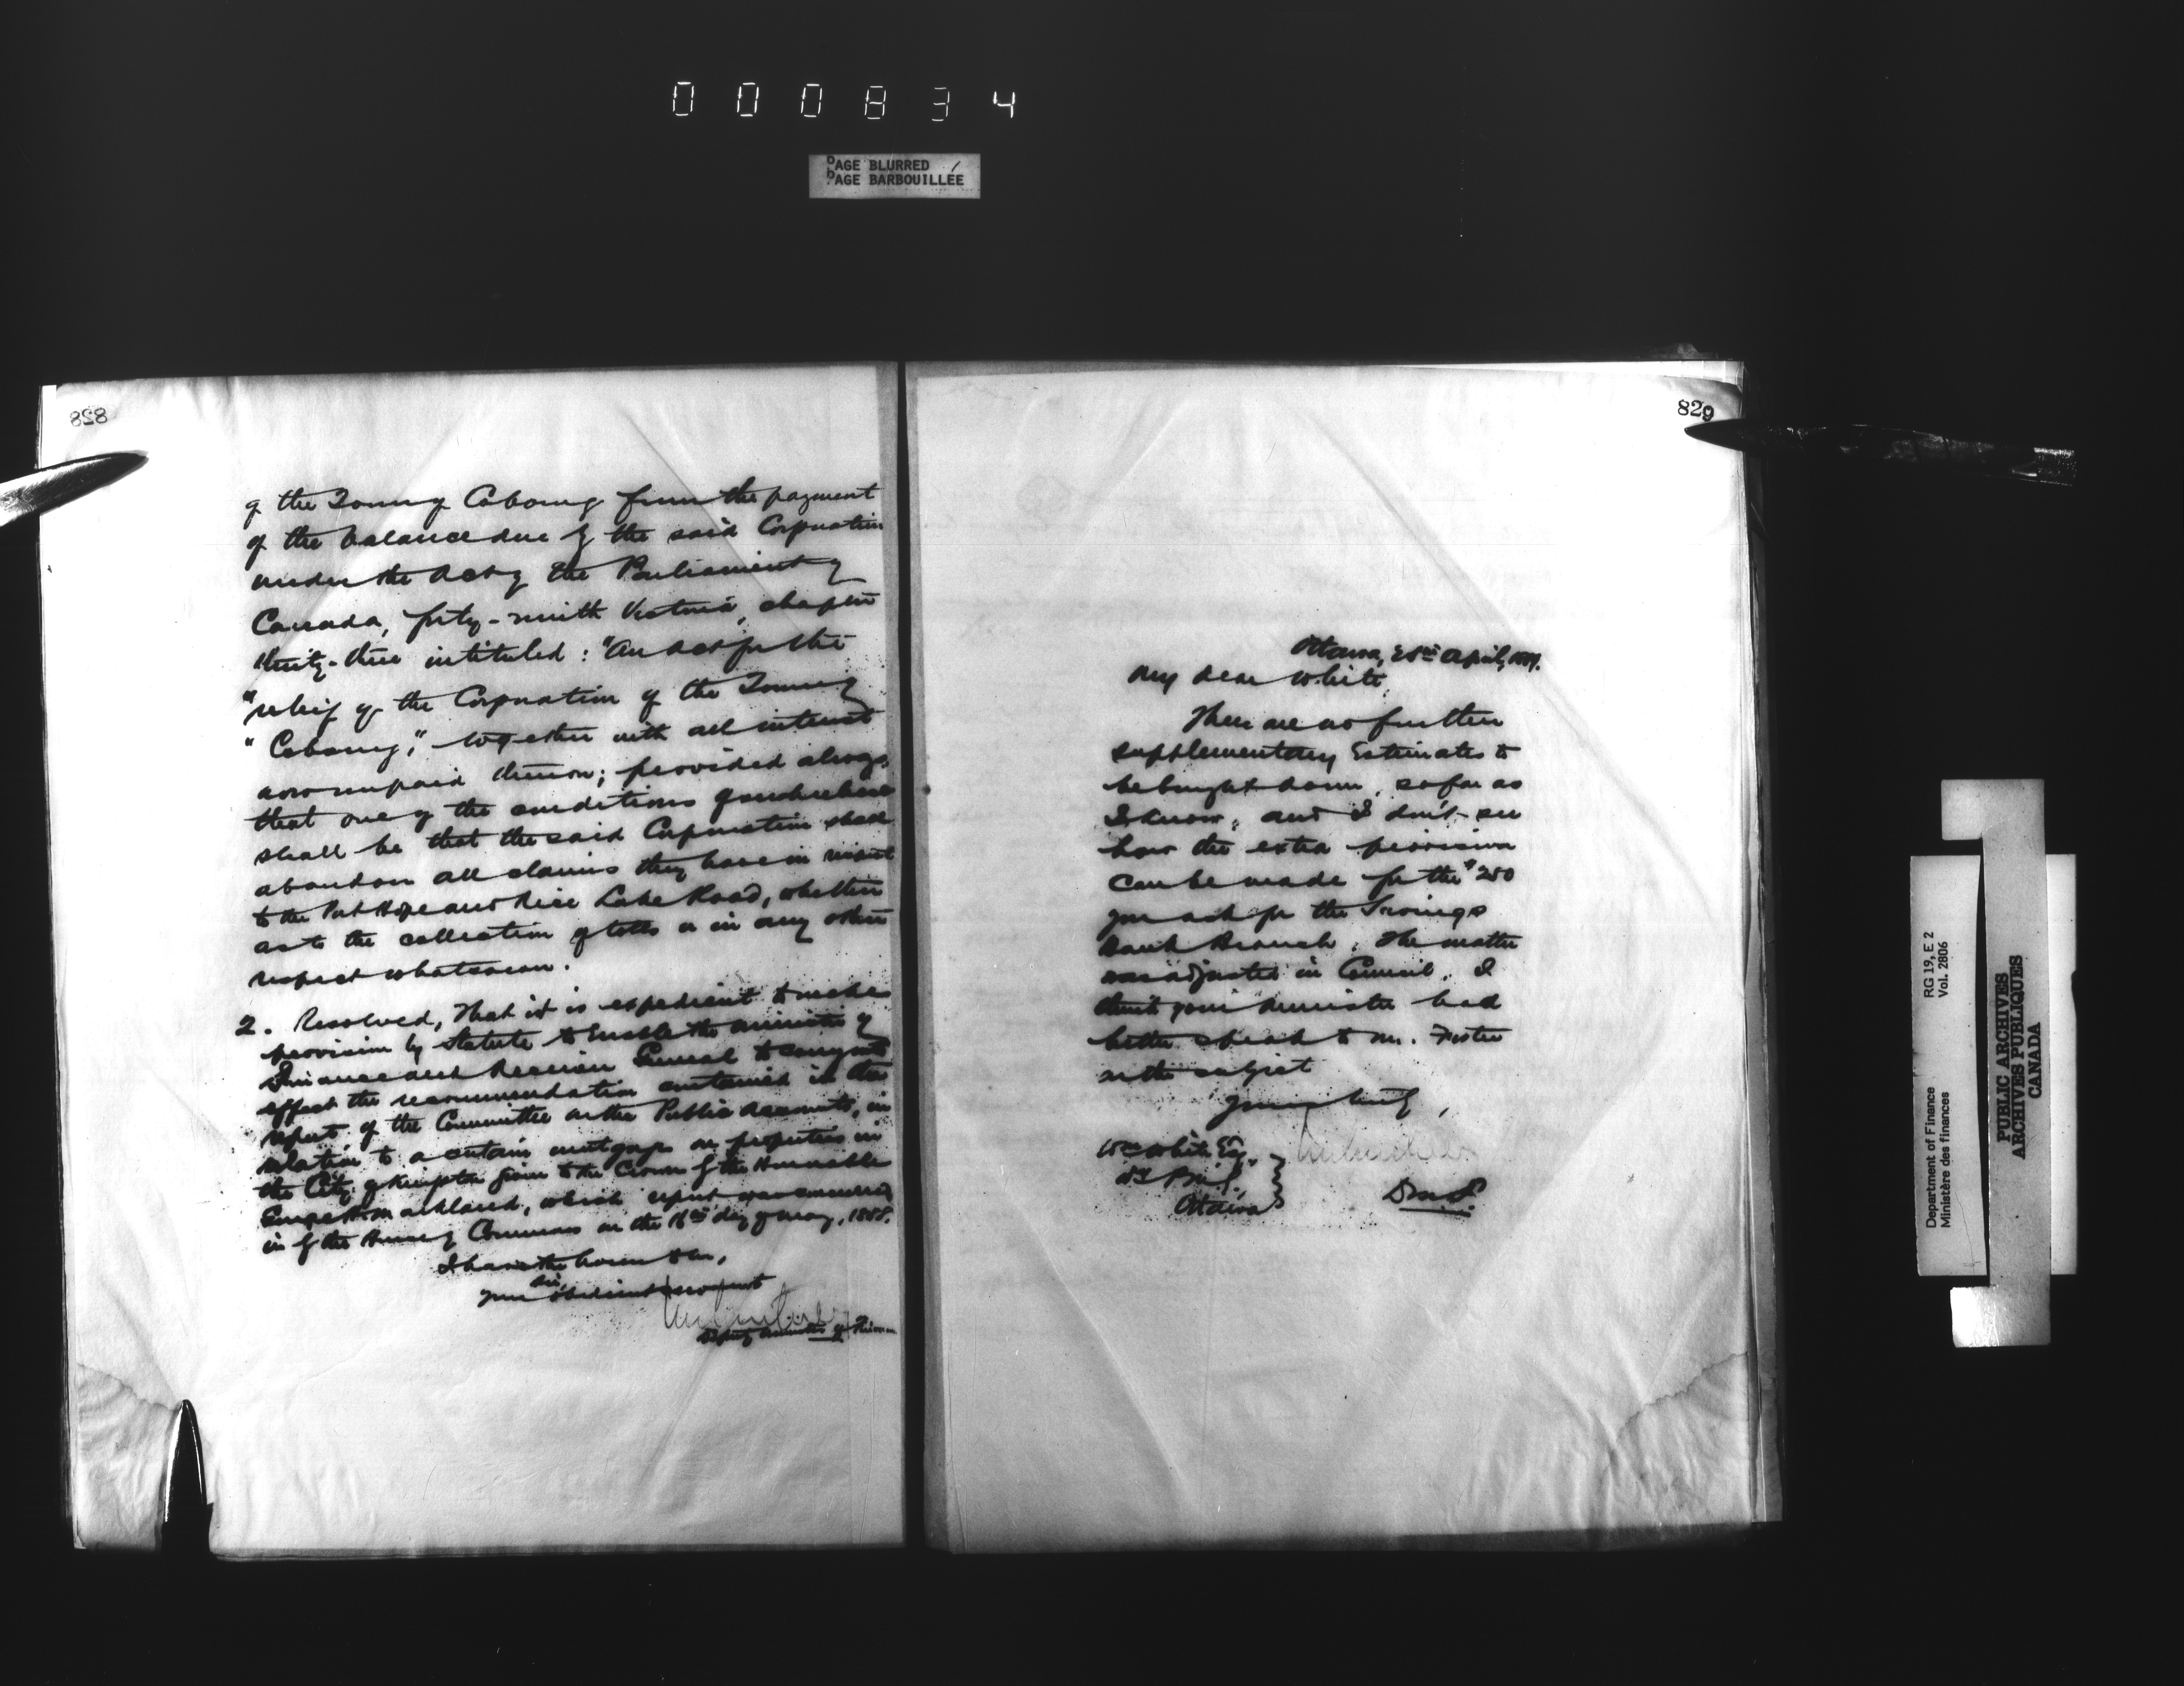 000834
PAGE BLURRED
PAGE BARBOUILLÉE
828
of the Town of Cobourg from the payment
of the balance due by the said Corporation
under the Act of the Parliament of
Canada, forty-ninth Victoria, chapter
thirty-three intituled: "An Act for the
"relief of the Corporation of the Town of
"Cobourg," together with all interest
now unpaid thereon; provided always,
that one of the conditions of such release
shall be that the said Corporation shall
abandon all claims they have in respect
to the Port Hope and Rice Lake Road, whether
as to the collection of tolls or in any other
respect whatsoever.
2. Resolved, That it is expedient to make
provision by Statute to enable the Minister of
Finance and Receiver General to carry into
effect the recommendation contained in the
report of the Committee on the Public Accounts, in
relation to a certain mortgage on properties in
the City of Kingston given to the Crown by the Honourable
George H. Markland, which report was concurred
in by the House of Commons on the 16th day of May, 1888.
I have the honour to be,
Sir,
Your obedient servant
Deputy Minister of Finance
829
Ottawa, April, 1889.
My dear White,
There are no further
supplementary Estimates to
be brought down, so far as
I know, and I don't see
how the extra provision
can be made for the $250
you ask for the Savings
Bank Branch. The matter
was adjusted in Council. I
think your Minister had
better speak to Mr. Foster
on the subject
Yours truly,
Wm White Esq.
Ottawa
D.M.F.
Department of Finance RG 19, E 2
Ministère des finances Vol. 2806
PUBLIC ARCHIVES
ARCHIVES PUBLIQUES
CANADA